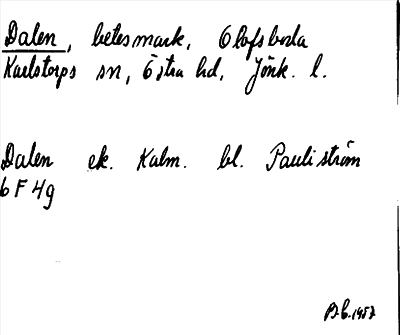 Dalen, betesmark, Olofsboda
Karlstorps sn, Östra hd, Jönk. l.
Dalen ek. Kalm. bl. Pauliström
6 F 4g
B.L. 1957